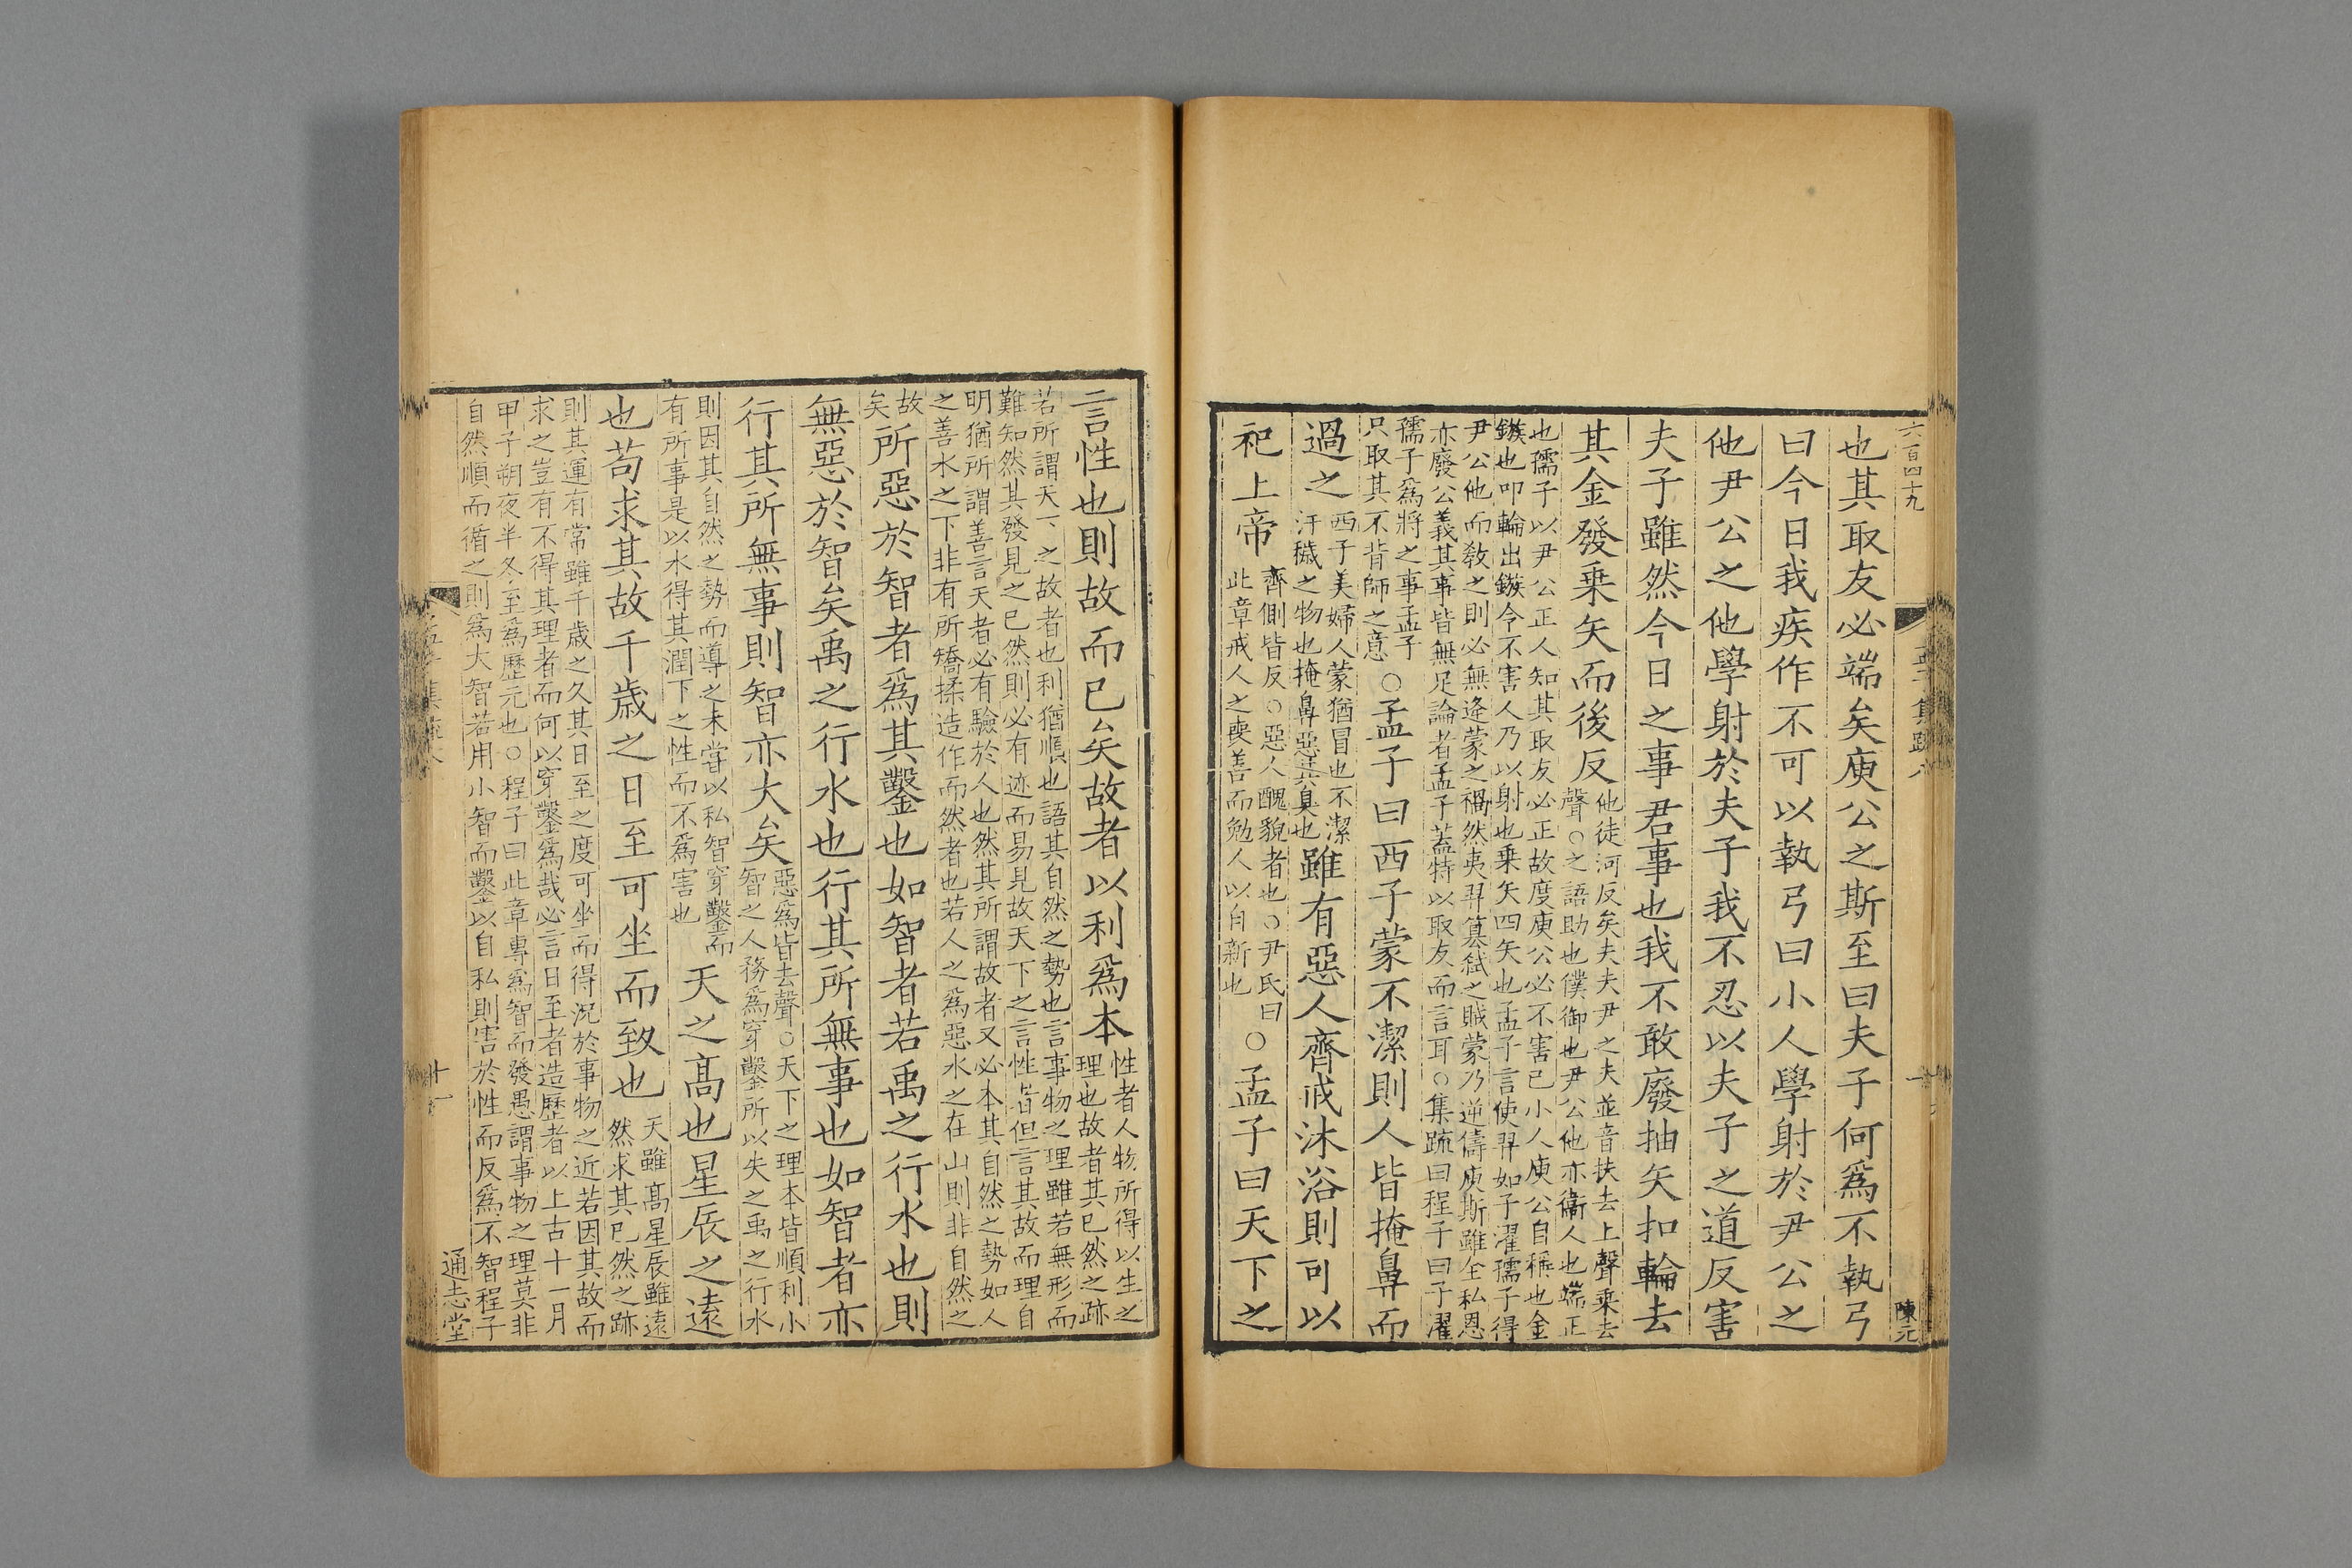 六百四十九
陳元
也其取友必端矣庾公之斯至曰夫子何爲不執弓
曰今日我疾作不可以執弓曰小人學射於尹公之
他尹公之他學射於夫子我不忍以夫子之道反害
夫子雖然今日之事君事也我不敢廢抽矢扣輪去
其金發乗矢而後反
他徒河反矣夫夫尹之夫並音扶去上聲乗去
聲○之語助也僕御也尹公他亦衞人也端正
也孺子以尹公正人知其取友必正故度庾公必不害己小人庾公自稱也金
鏃也叩輪出鏃令不害人乃以射也乗矢四矢也孟子言使羿如子濯孺子得
尹公他而敎之則必無逄蒙之禍然夷羿簒弑之賊蒙乃逆儔庾斯雖全私恩
亦廢公義其事皆無足論者孟子蓋特以取友而言耳○集疏曰程子曰子濯
孺子爲將之事孟子
只取其不背師之意
○孟子曰西子蒙不潔則人皆掩鼻而
過之
西子美婦人蒙猶冒也不潔
汙穢之物也掩鼻惡其臭也
雖有惡人齊戒沐浴則可以
祀上帝
齊側皆反○惡人醜貌者也○尹氏曰
此章戒人之喪善而勉人以自新也
○孟子曰天下之
言性也則故而已矣故者以利爲本
性者人物所得以生之
理也故者其已然之跡
若所謂天下之故者也利猶順也語其自然之勢也言事物之理雖若無形而
難知然其發見之已然則必有迹而易見故天下之言性皆但言其故而理自
明猶所謂善言天者必有驗於人也然其所謂故者又必本其自然之勢如人
之善水之下非有所矯揉造作而然者也若人之爲惡水之在山則非自然之
故
矣
所惡於智者爲其鑿也如智者若禹之行水也則
無惡於智矣禹之行水也行其所無事也如智者亦
行其所無事則智亦大矣
惡爲皆去聲○天下之理本皆順利小
智之人務爲穿鑿所以失之禹之行水
則因其自然之勢而導之未嘗以私智穿鑿而
有所事是以水得其潤下之性而不爲害也
天之髙也星辰之遠
也茍求其故千歳之日至可坐而致也
天雖髙星辰雖遠
然求其已然之跡
則其運有常雖千歳之久其日至之度可坐而得況於事物之近若因其故而
求之豈有不得其理者而何以穿鑿爲哉必言日至者造歷者以上古十一月
甲子朔夜半冬至爲歷元也○程子曰此章專爲智而發愚謂事物之理莫非
自然順而循之則爲大智若用小智而鑿以自私則害於性而反爲不智程子
十一
通志堂